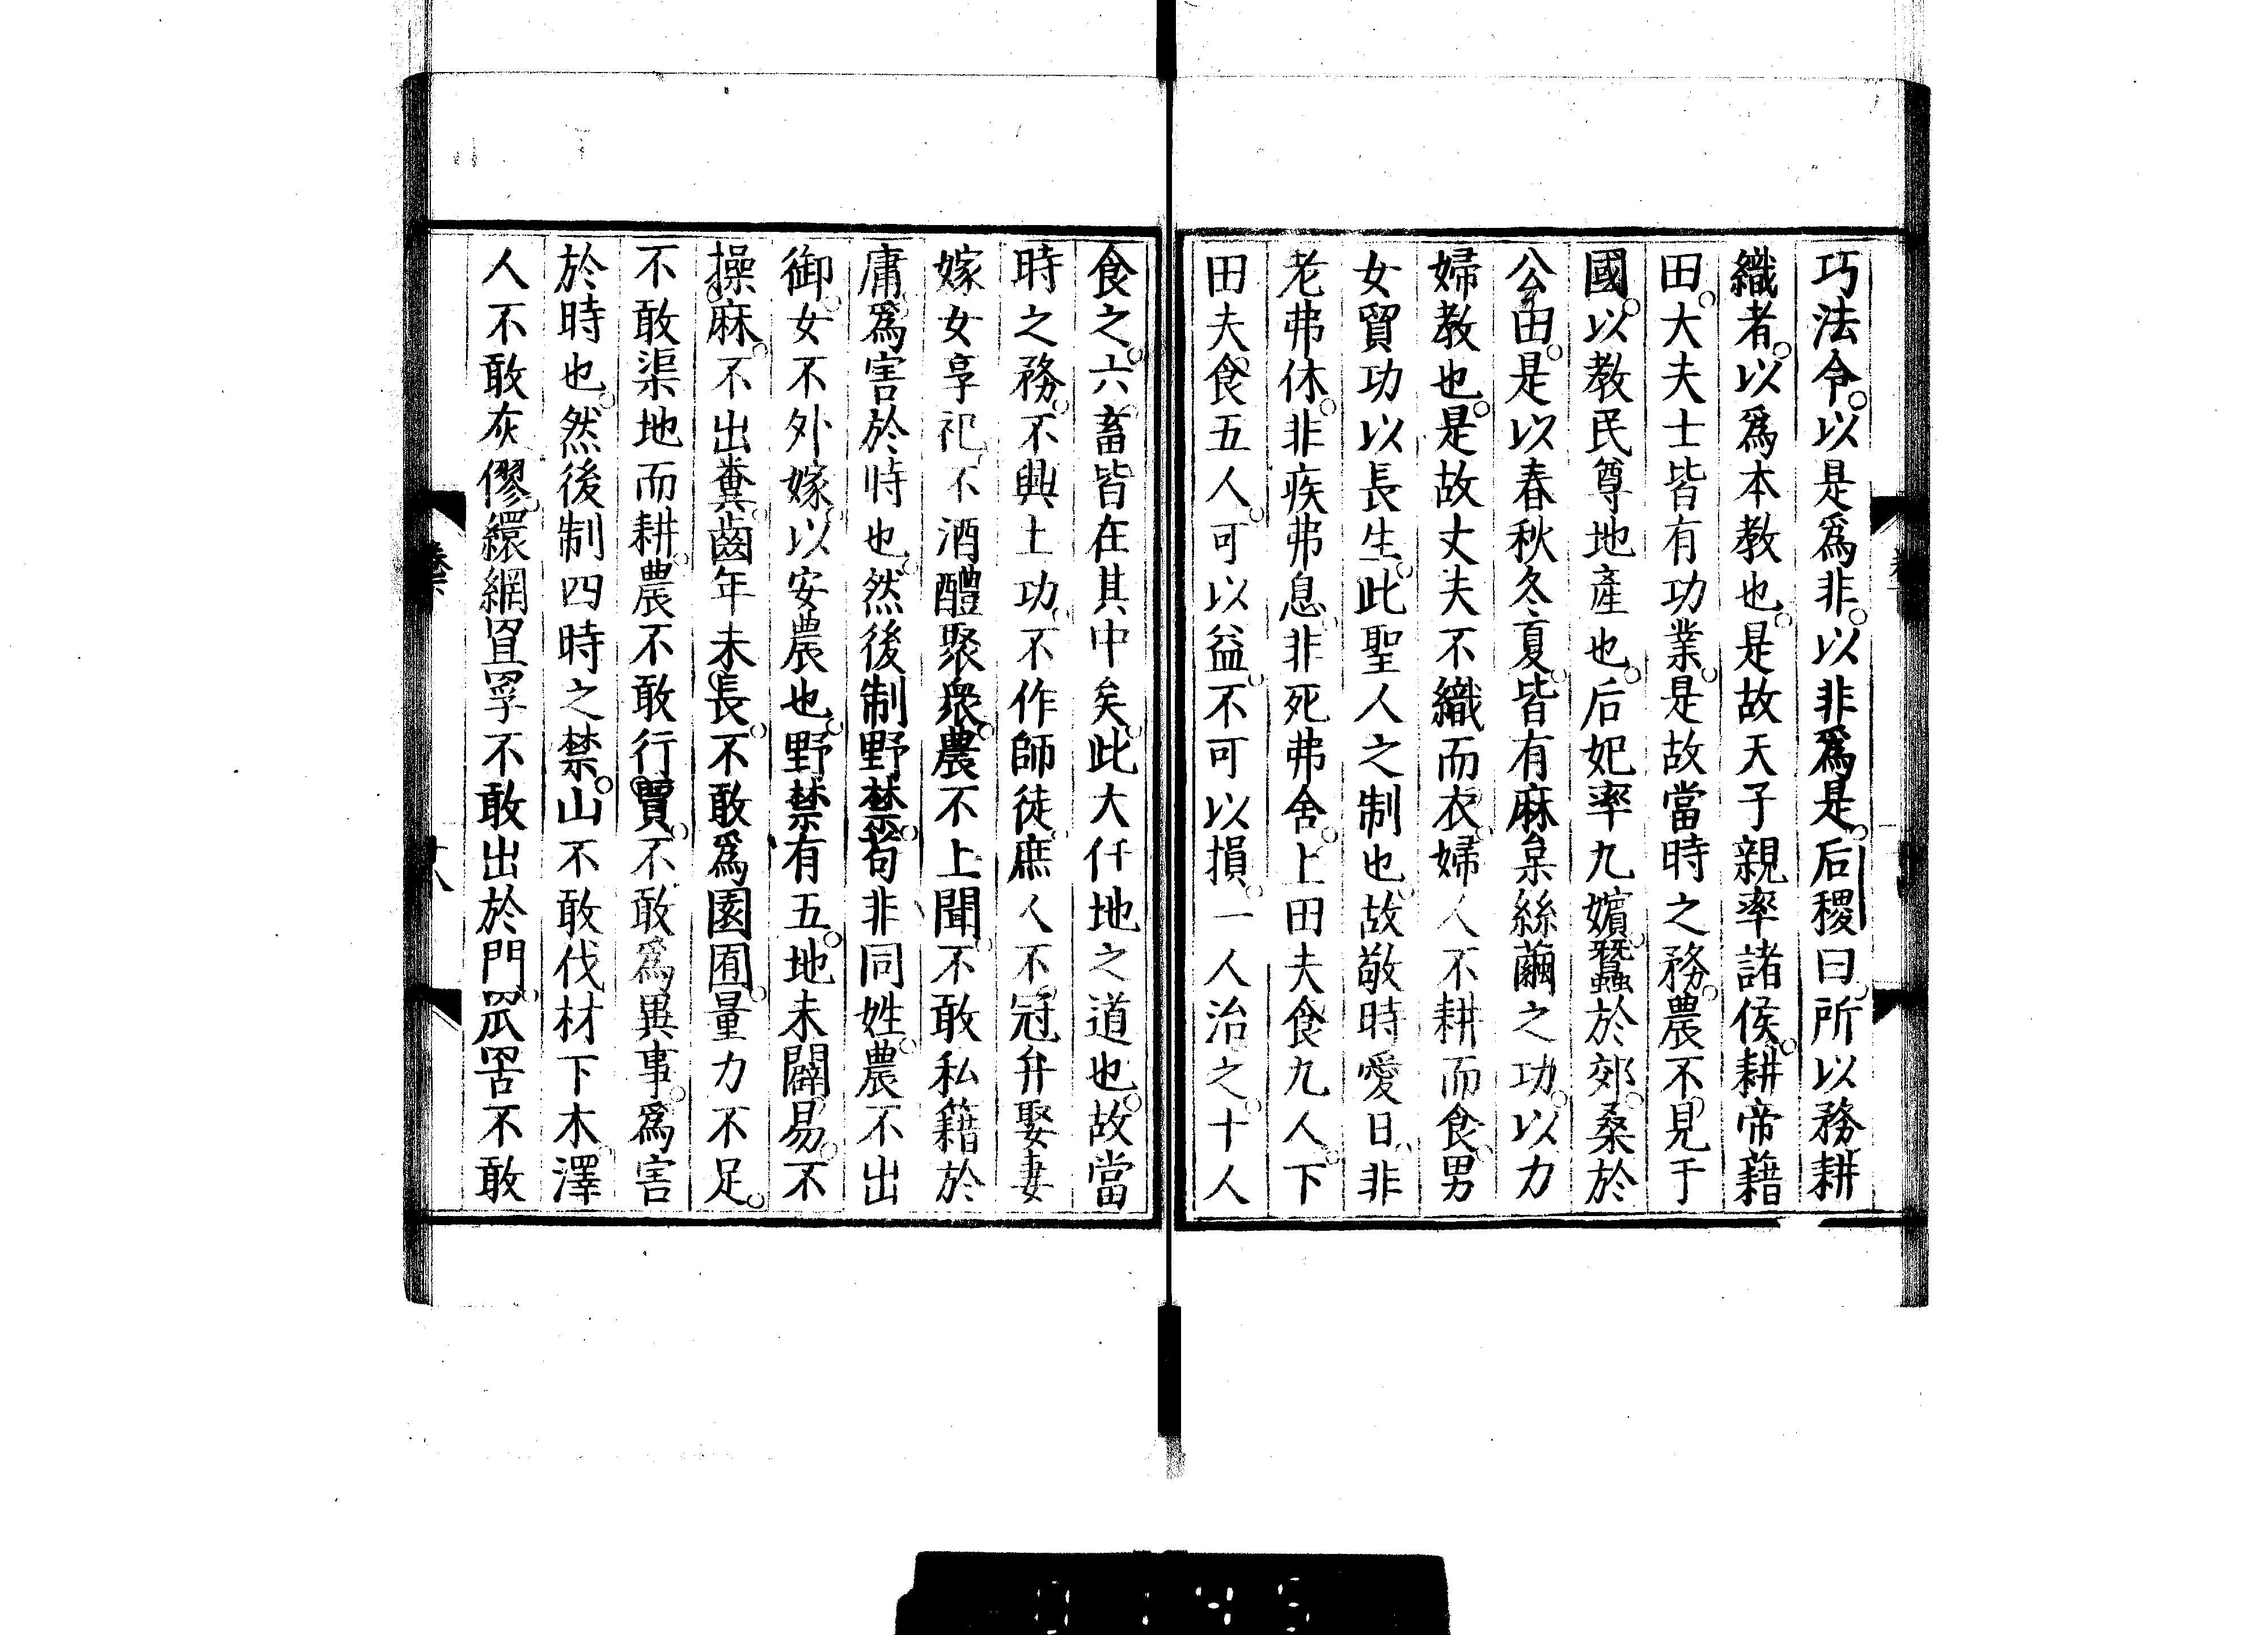 巧法令以是爲非以非爲是后稷曰所以務耕
織者以爲本教也是故天子親率諸侯耕帝藉
田大夫士皆有功業是故當時之務農不見于
國以教民尊地產也后妃率九嬪蠶於郊桑於
公田是以春秋冬夏皆有麻枲絲繭之功以力
婦教也是故丈夫不織而衣婦人不耕而食男
女貿功以長生此聖人之制也故敬時愛日非
老弗休非疾弗息非死弗舍上田夫食九人下
田夫食五人可以益不可以損一人治之十人
食之六畜皆在其中矣此大任地之道也故當
時之務不興土功不作師徒庶人不冠弁娶妻
嫁女享祀不酒醴聚衆農不上聞不敢私籍於
庸爲害於時也然後制野禁苟非同姓農不出
御女不外嫁以安農也野禁有五地未闢易不
操麻不出糞齒年未長不敢爲園囿量力不足
不敢渠地而耕農不敢行賈不敢爲異事爲害
於時也然後制四時之禁山不敢伐材下木澤
人不敢灰僇繯網罝罦不敢出於門罛罟不敢